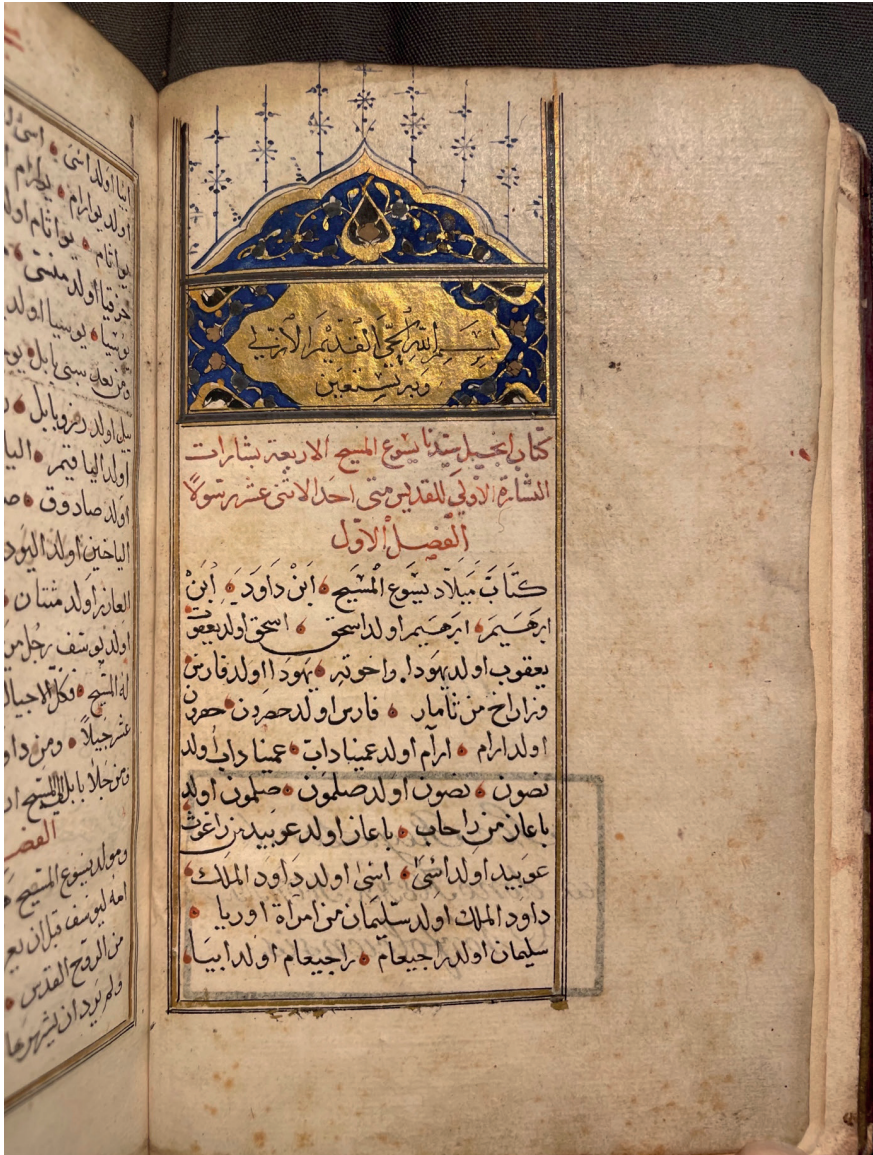 بسم الله الحي القديم الازلي
وبه نستعين
كتاب انجيل سيدنا يسوع المسيح الاربعة بشارات
البشارة الاولى للقديس متى احد الاثنى عشر رسولاً
الفصل الاول
كتاب ميلاد يسوع المسيح ابن داود ابن
ابرهيم ابرهيم اولد اسحق اسحق اولد يعقوب
يعقوب اولد يهودا واخوته يهودا اولد فارص
وزاراخ من ثامار فارص اولد حصرون حصرون
اولد ارام ارام اولد عميناداب عميناداب اولد
نصون نصون اولد صلمون صلمون اولد
باعاز من راحاب باعاز اولد عوبيد من راعوث
عوبيد اولد اسى اسى اولد داود الملك
داود الملك اولد سليمان من امراة اوريا
سليمان اولد راجيعام راجيعام اولد ابيا
ابيا اولد اسى
اولد يوارام
يواثام يواثام
حزقيا اولد منسى
يوشيا يوسيا اولد
ومن بعد سبى بابل
اولد الياقيم
اولد صادوق
الياخين اولد اليود
العازر اولد متتان
اولد يوسف رجل
له المسيح فكل الاجيال
عشر جيلاً ومن
ومن جلا بابل الى المسيح
ومولد يسوع المسيح
امه ليوسف قبل ان
من الروح القدس
ولم يرد ان يشهرها